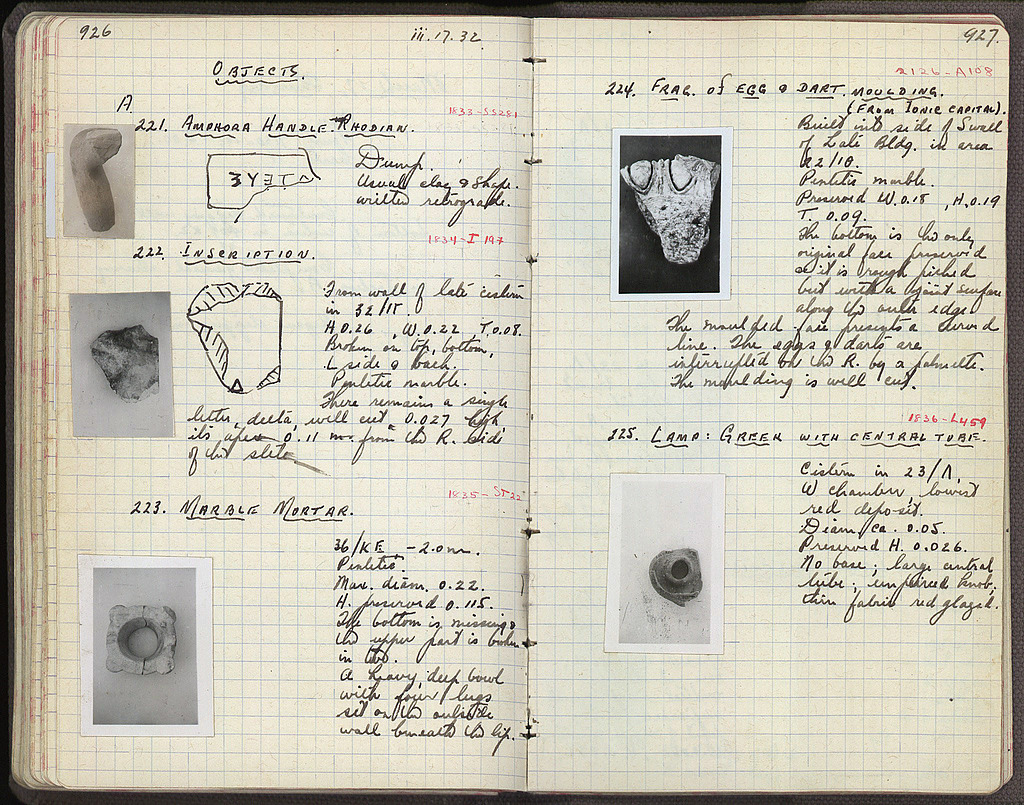 926
iii.17.32
OBJECTS.
A
1833-SS281
221. AMPHORA HANDLE: RHODIAN.
Dump.
Usual clay & shape.
written retrograde.
1834-I 197
222. INSCRIPTION.
From wall of late cistern
in 32/ΙΓ
H 0.26, W. 0.22, T. 0.08.
Broken on top, bottom,
L side & back.
Pentelic marble.
There remains a single
letter, delta, well cut, 0.027 high,
its apex 0.11 m. from the R. side
of the stele
1835-ST22
223. MARBLE MORTAR.
36/ΚΕ -2.0 m.
Pentelic.
Max. diam. 0.22.
H. preserved 0.115.
The bottom is missing &
the upper part is broken
in two.
A heavy, deep bowl
with four lugs
set on the outside
wall beneath the lip.
927.
2126-A108
224. FRAG. of EGG & DART MOULDING.
(FROM IONIC CAPITAL).
Built into side of S wall
of Late Bldg. in area
Pentelic marble.
Preserved W. 0.18, H. 0.19
T. 0.09.
The bottom is the only
original face preserved
as it is rough picked
but with a joint surface
along the outer edge
The moulded face presents a curved
line. The eggs & darts are
interrupted on the R. by a palmette.
The moulding is well cut.
1836-L459
225. LAMP: GREEK WITH CENTRAL TUBE.
Cistern in 23/Λ,
W chamber, lowest
red deposit.
Diam. ca. 0.05.
Preserved H. 0.026.
No base; large central
tube; unpierced knob;
thin fabric red glazed.